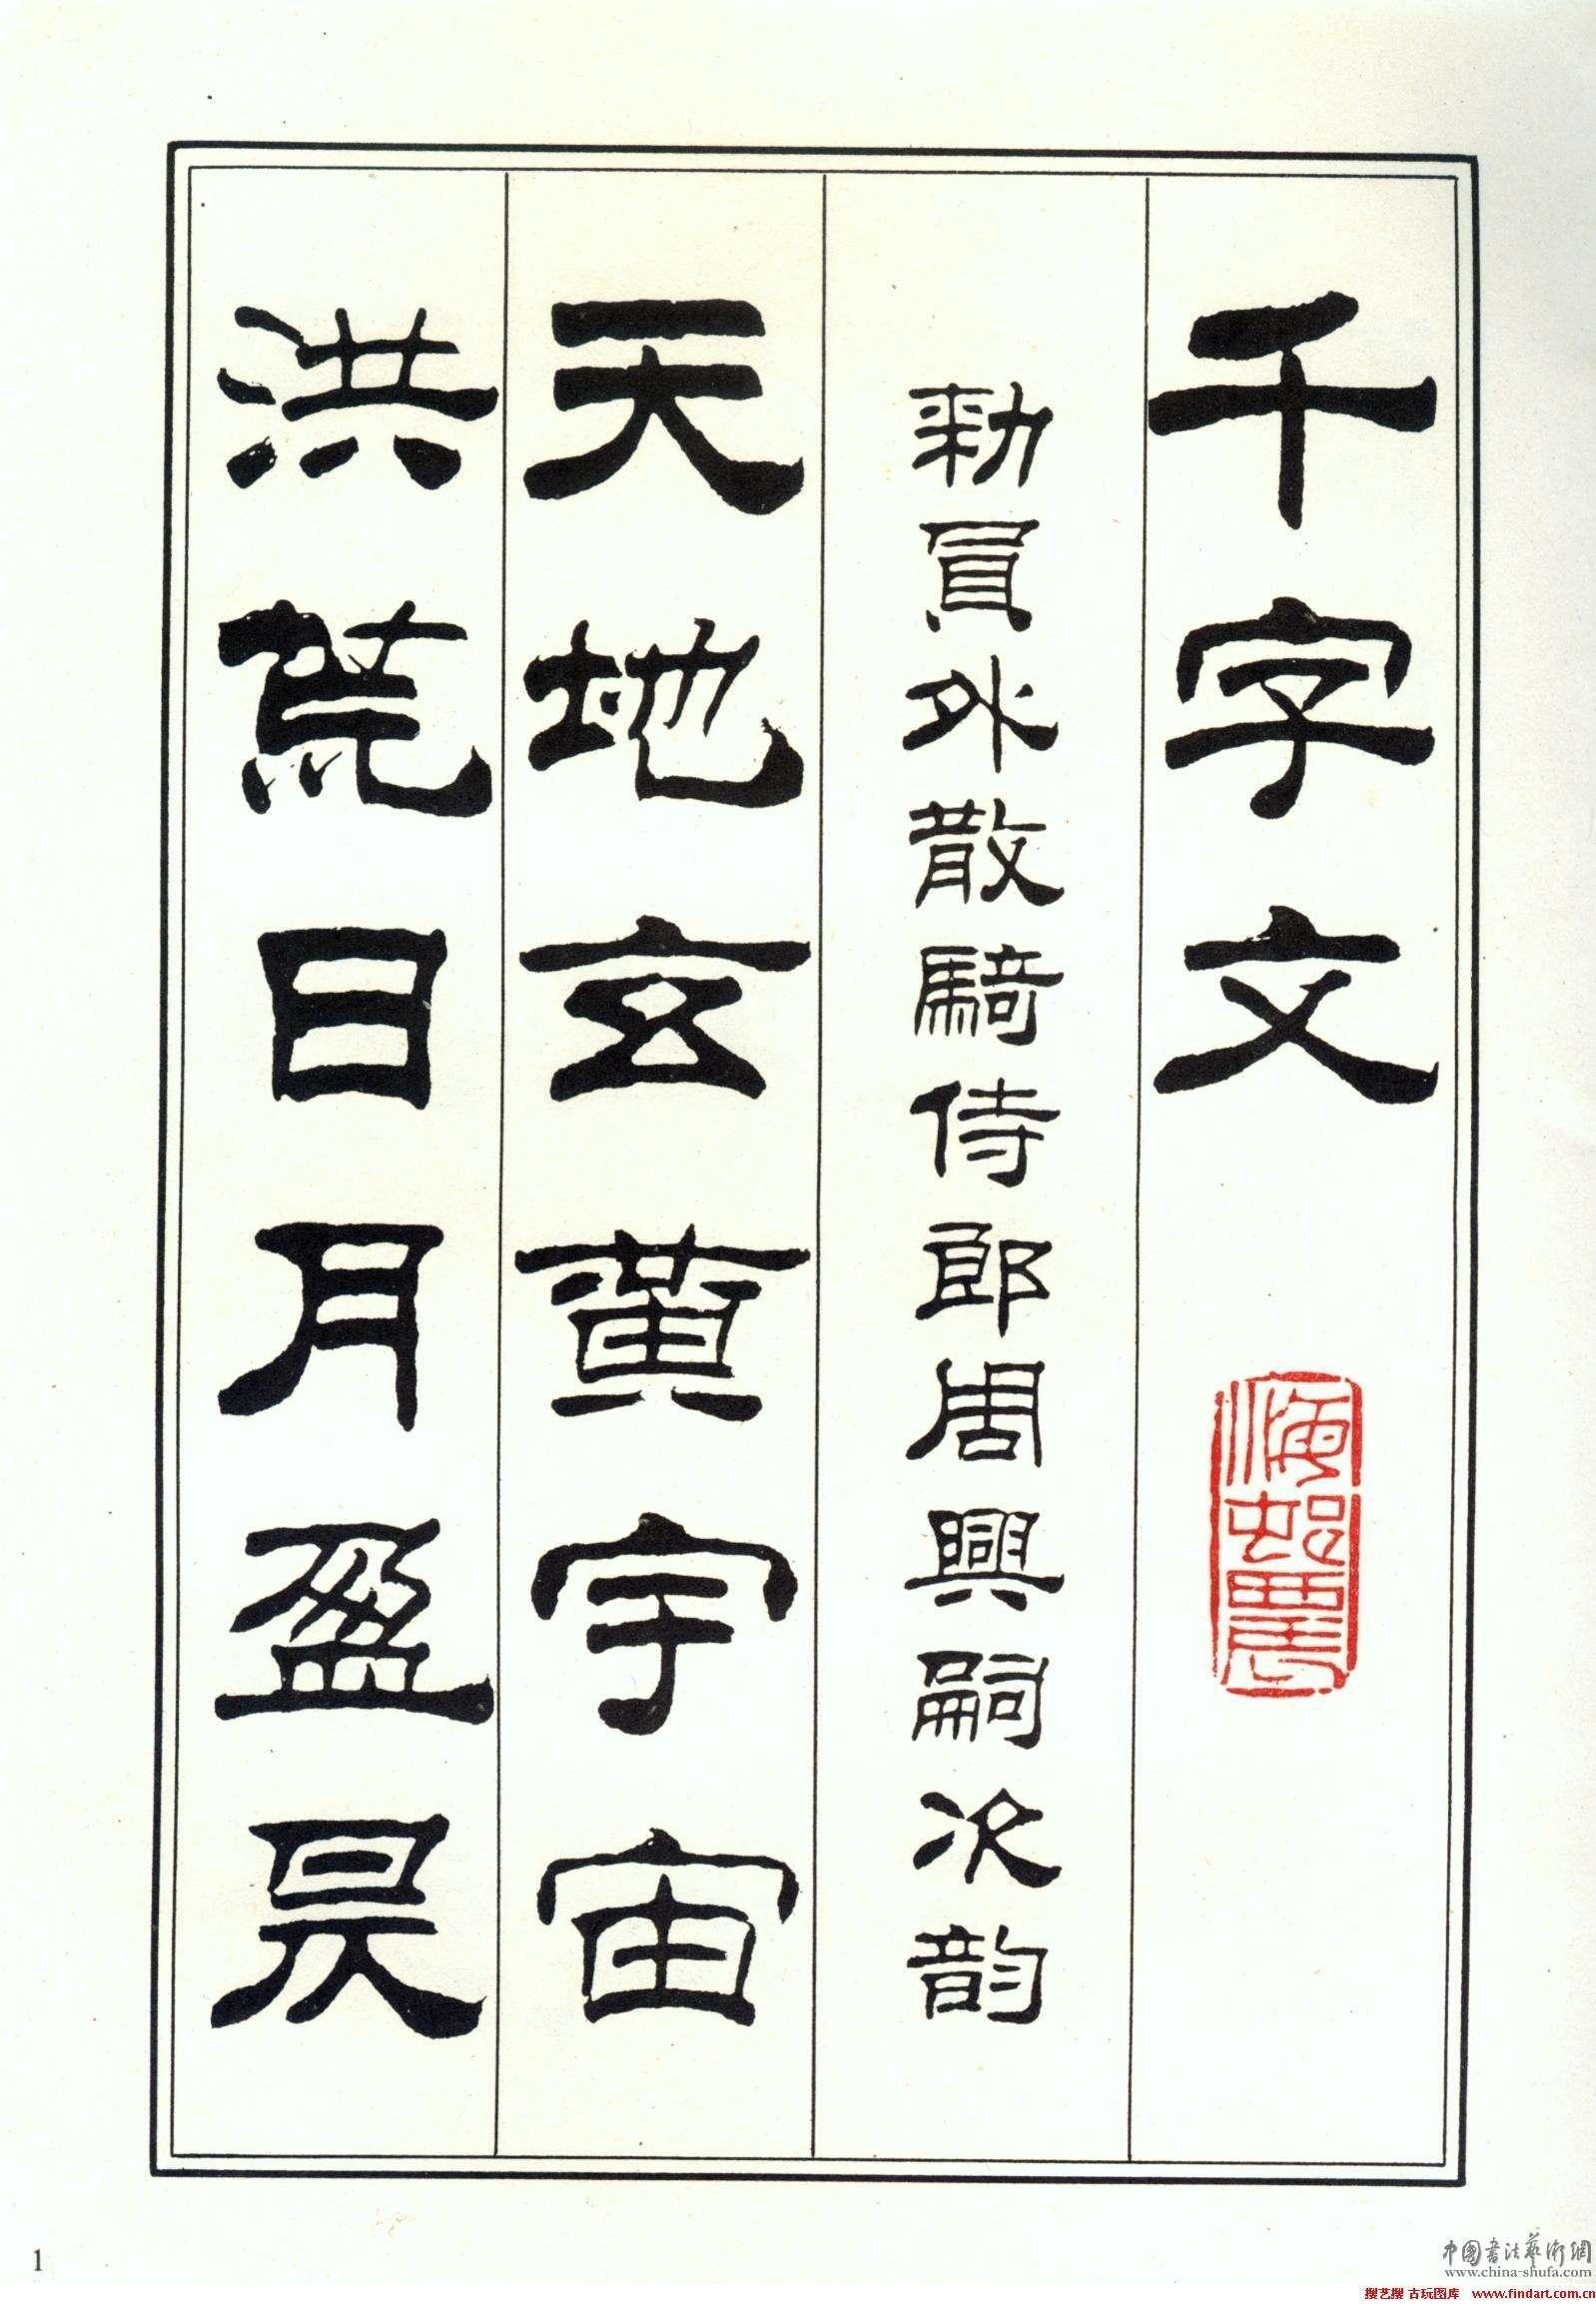 千字文
勑員外散騎侍郎周興嗣次韵
天地玄黄宇宙
洪荒日月盈昃
1
中國書法藝術網
www.china-shufa.com
搜艺搜 古玩图库 www.findart.com.cn